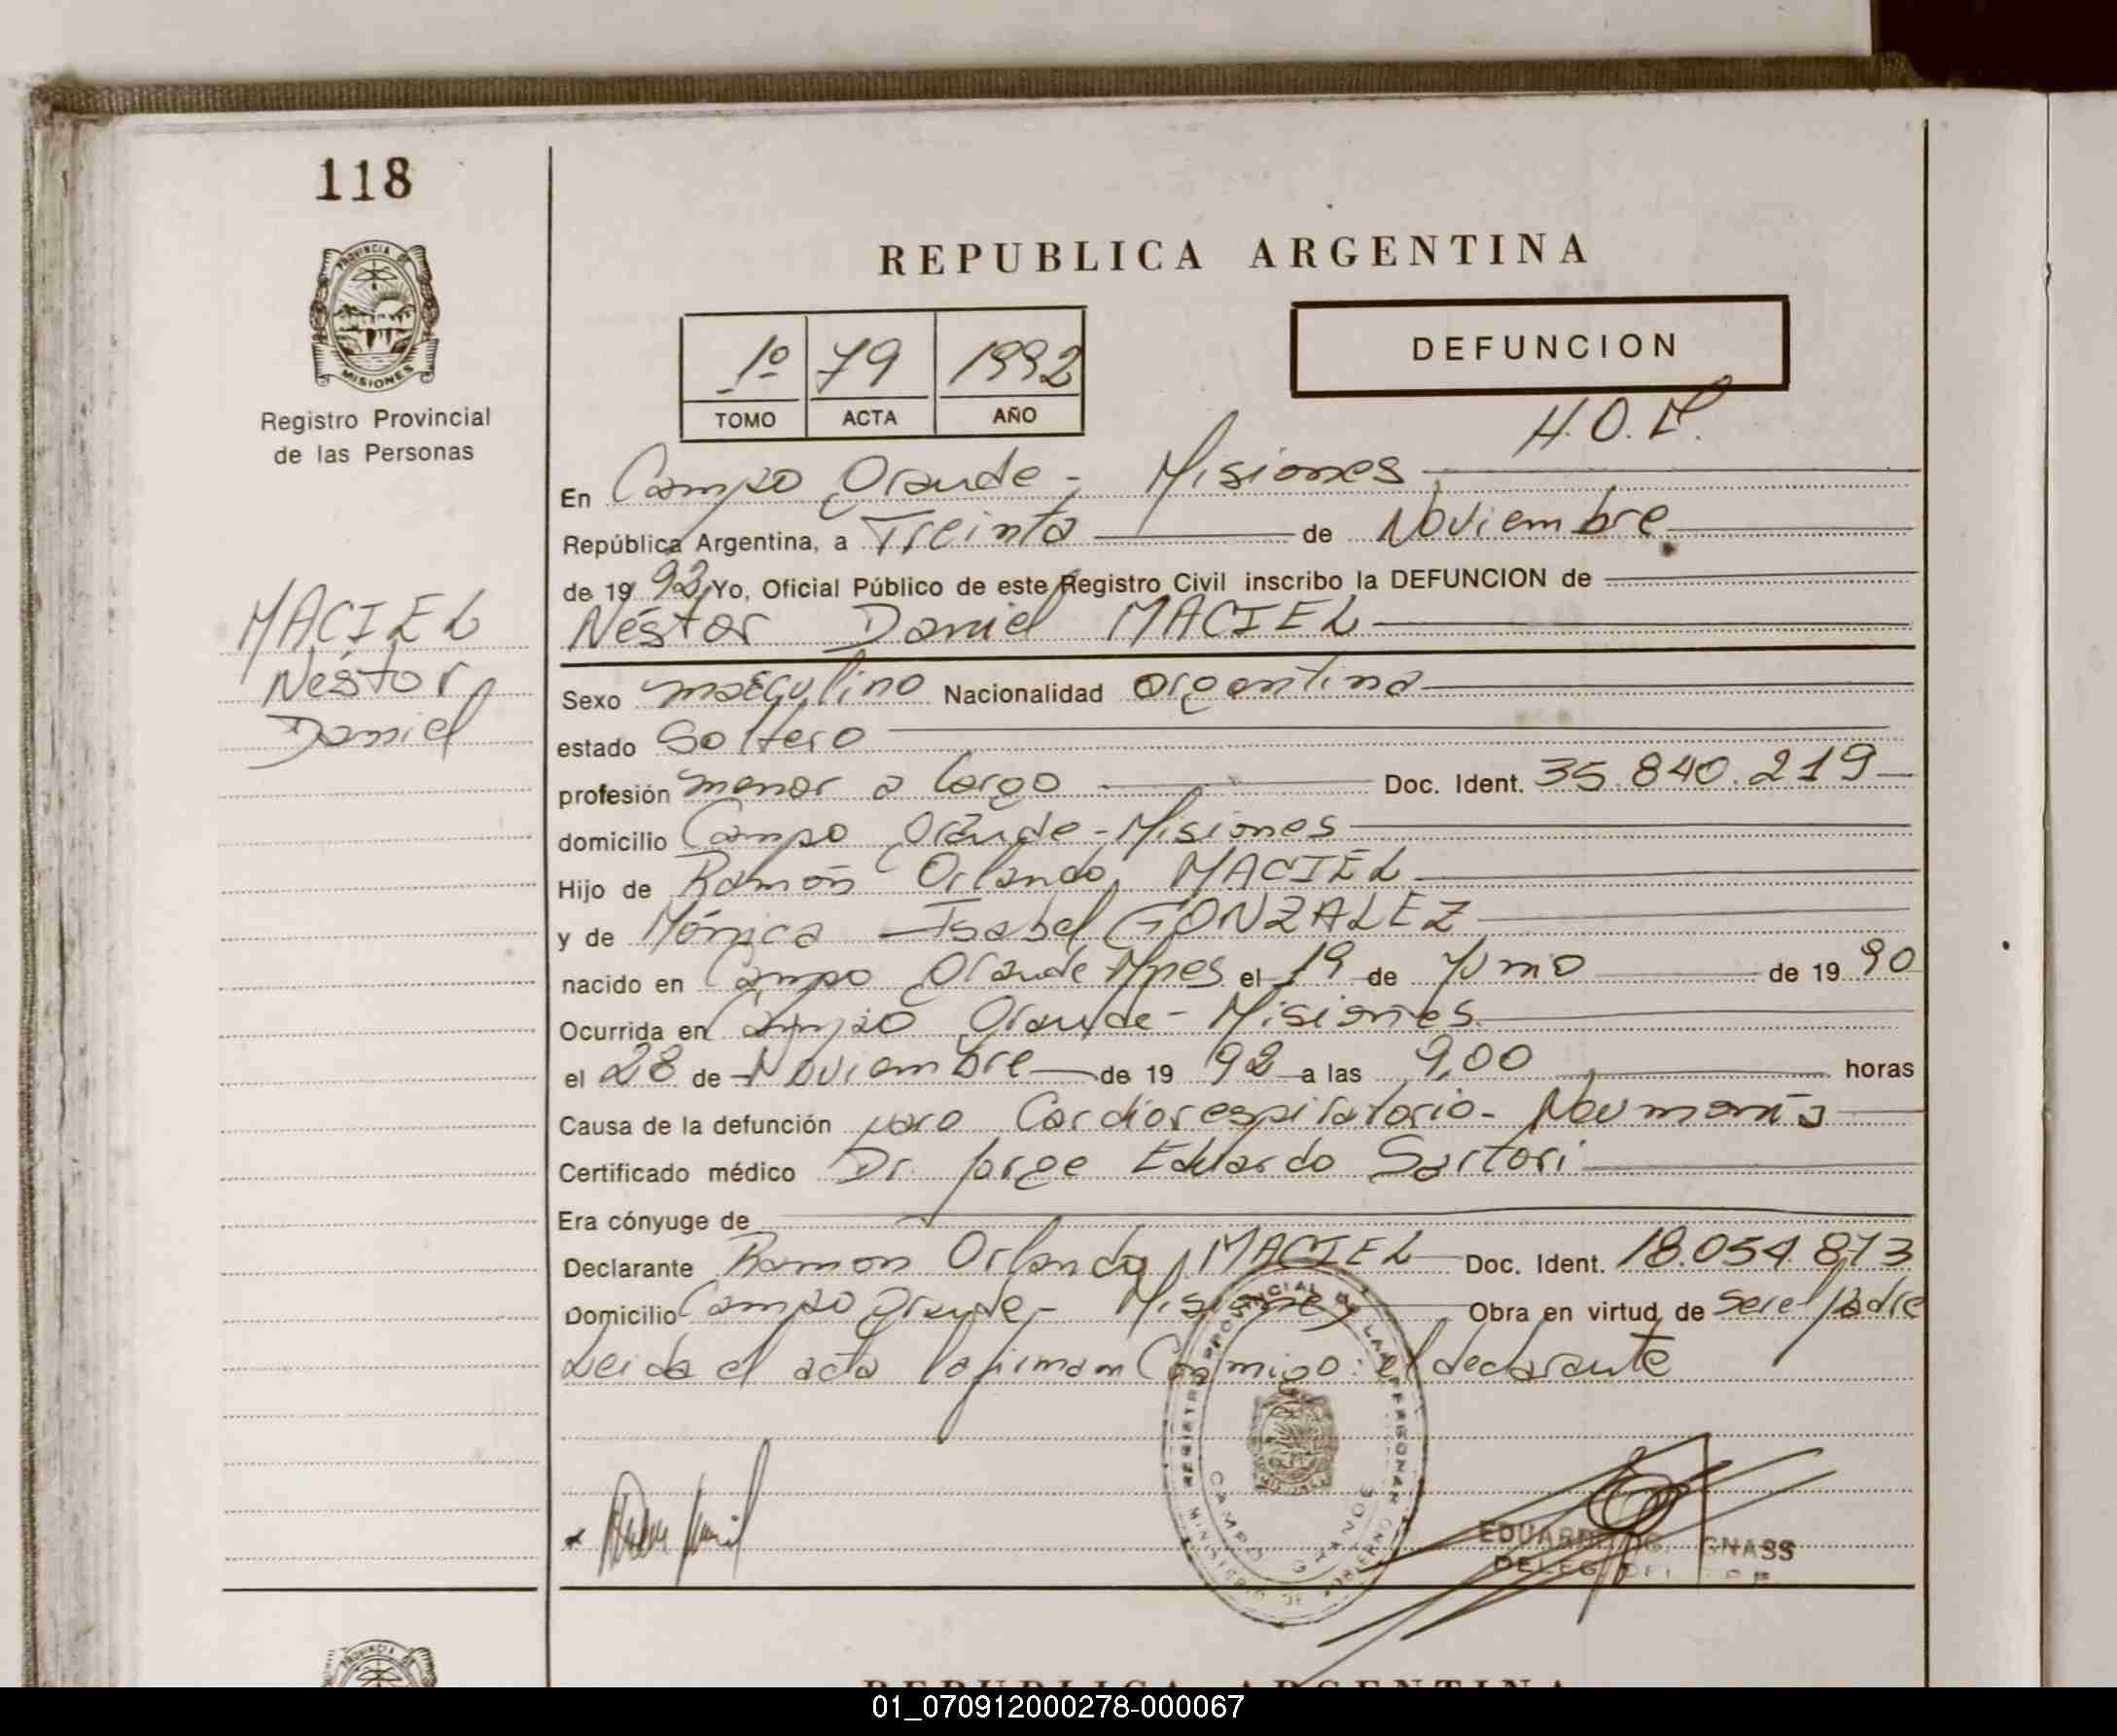 118
PROVINCIA DE
MISIONES
Registro Provincial
de las Personas
MACIEL
Néstor
Daniel
REPUBLICA ARGENTINA
1º 79 1992
TOMO ACTA AÑO
DEFUNCION
En Campo Grande - Misiones
República Argentina, a Treinta de Noviembre
de 19 92 Yo, Oficial Público de este Registro Civil inscribo la DEFUNCION de
Néstor Daniel MACIEL
Sexo masculino Nacionalidad argentina
estado Soltero
profesión menor a cargo Doc. Ident. 35.840.219
domicilio Campo Grande - Misiones
Hijo de Ramón Orlando MACIEL
y de Mónica Isabel GONZALEZ
nacido en Campo Grande Mnes el 19 de Junio de 19 90
Ocurrida en Campo Grande - Misiones
el 28 de Noviembre de 19 92 a las 9,00 horas
Causa de la defunción paro Cardiorespiratorio - Neumonía
Certificado médico Dr. Jorge Eduardo Sartori
Era cónyuge de
Declarante Ramon Orlando MACIEL Doc. Ident. 18.054.873
Domicilio Campo Grande - Misiones Obra en virtud de ser el padre
Leida el acta la firman Conmigo: el declarante
CAMPO GRANDE
REPUBLICA ARGENTINA
01_070912000278-000067